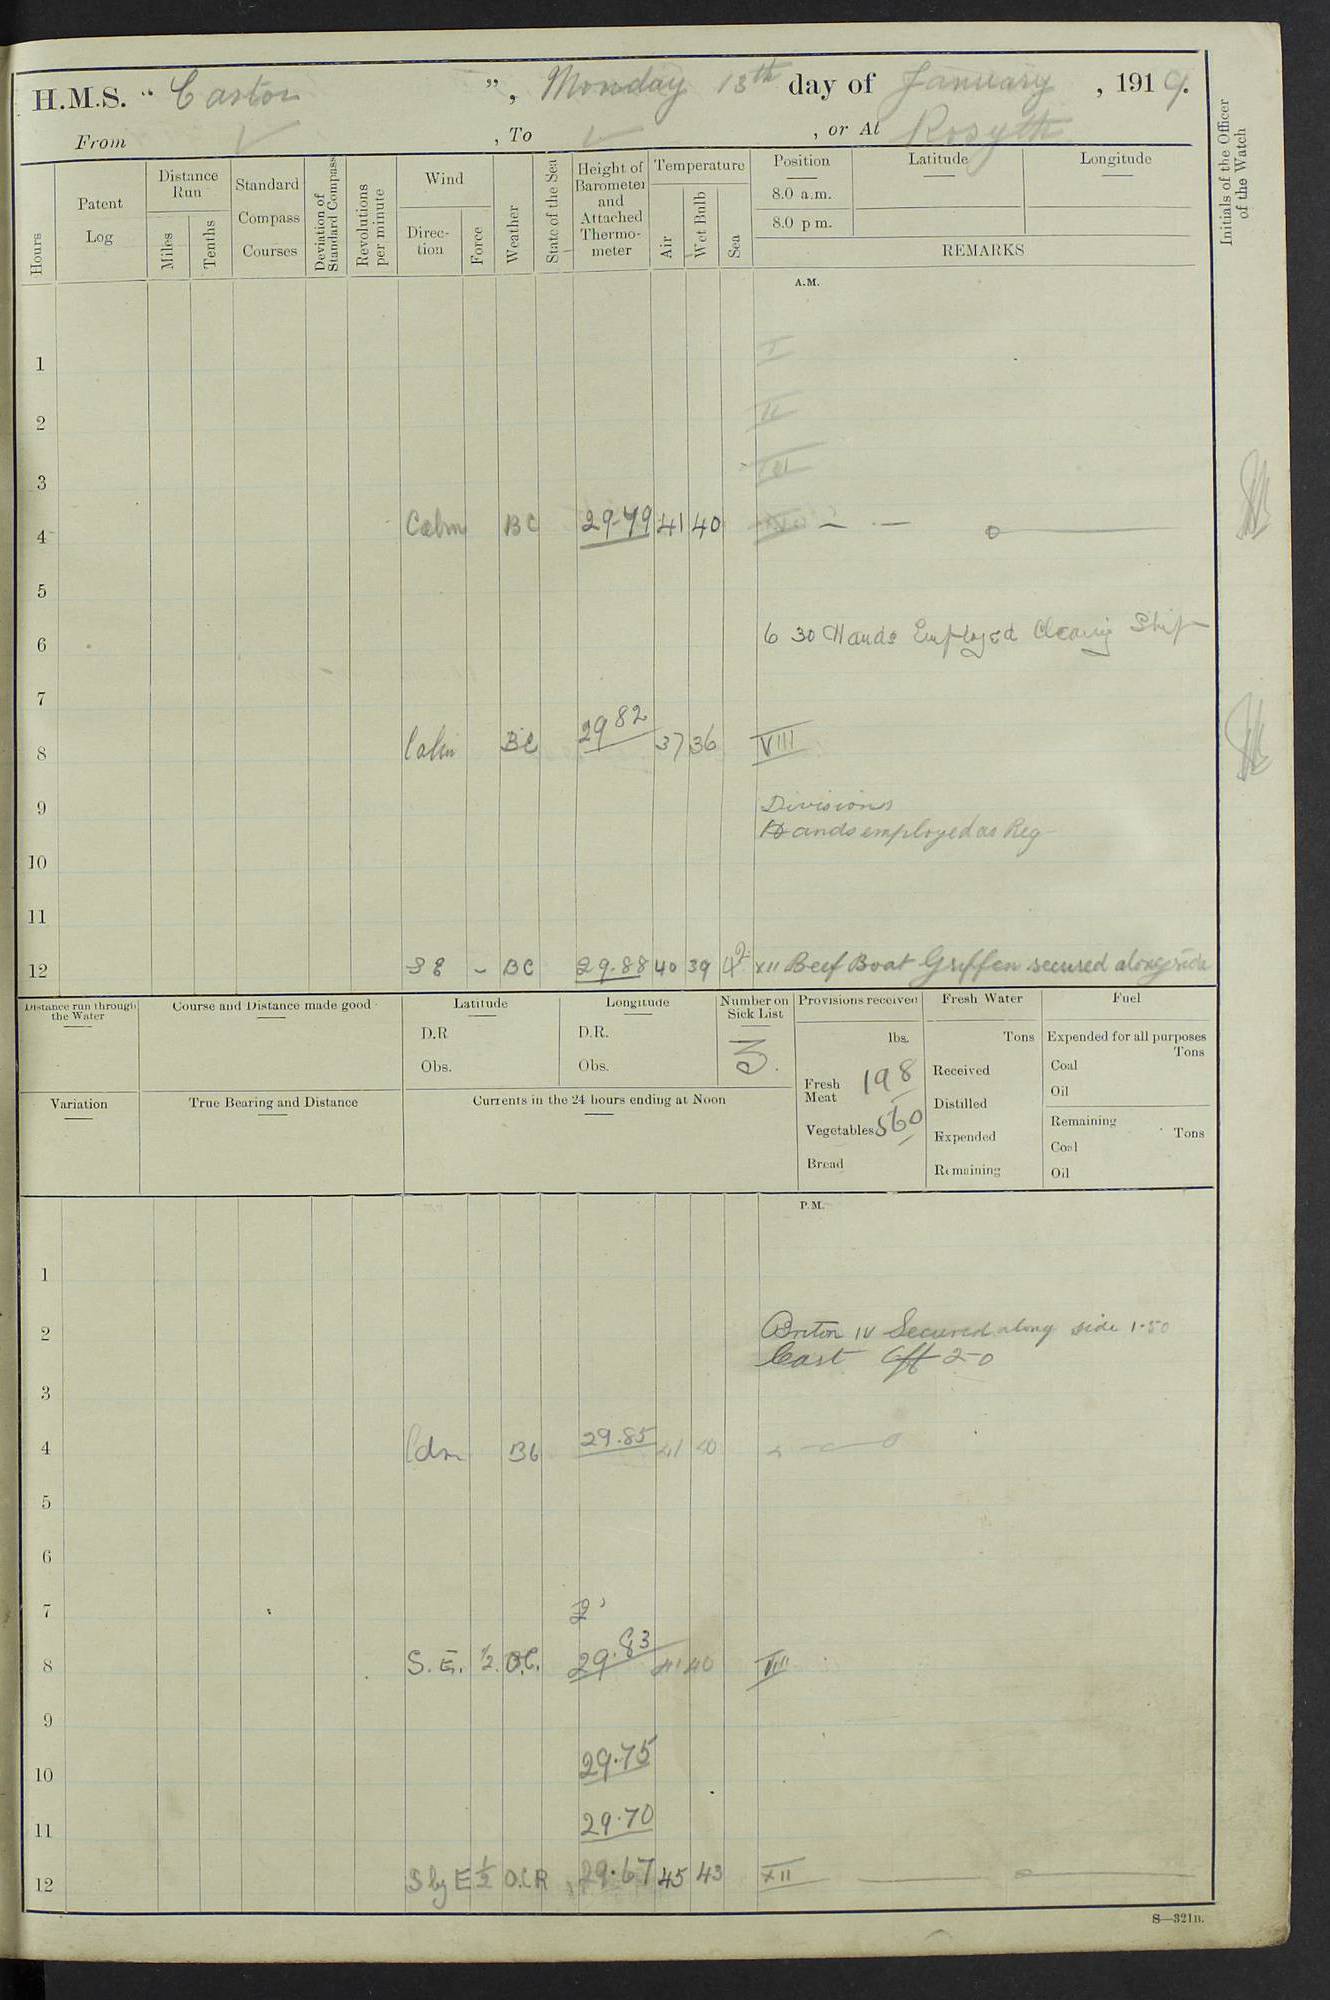 H.M.S. "Castor", Monday 13th day of January, 1919.
From ✓, To ✓, or At Rosyth
Hours
Patent Log
Distance Run
Miles
Tenths
Standard Compass Courses
Deviation of Standard Compass
Revolutions per minute
Wind
Direc-tion
Force
Weather
State of the Sea
Height of Barometer and Attached Thermo-meter
Temperature
Air
Wet Bulb
Sea
Position
8.0 a.m.
8.0 p m.
Latitude
Longitude
REMARKS
Initials of the Officer of the Watch
A.M.
1 I
2 II
3 III
4 Calm BC 29.79 41 40
5
6 6 30 Hands Employed Cleaning Ship
7
8 Calm BC 29 82 37 36 VIII
9 Divisions
Hands employed as Reg
10
11
12 SE - BC 29.88 40 39 42 XII Beef Boat Griffen secured alongside
Distance run through the Water
Course and Distance made good
Latitude
D.R
Obs.
Longitude
D.R.
Obs.
Number on Sick List
3.
Provisions received
lbs.
Fresh Meat 198
Vegetables 560
Bread
Fresh Water
Tons
Received
Distilled
Expended
Remaining
Fuel
Expended for all purposes
Tons
Coal
Oil
Remaining
Tons
Coal
Oil
Variation
True Bearing and Distance
Currents in the 24 hours ending at Noon
P.M.
1
2 Briton IV Secured along side 1-50
Cast Off 2-0
3
4 Calm BC 29.85 41 40
5
6
7 2
8 S.E. 1/2. O.C. 29.83 41 40 VIII
9
10 29.75
11 29.70
12 S by E 1/2 O.C.R 29.67 45 43 XII
S—321B.